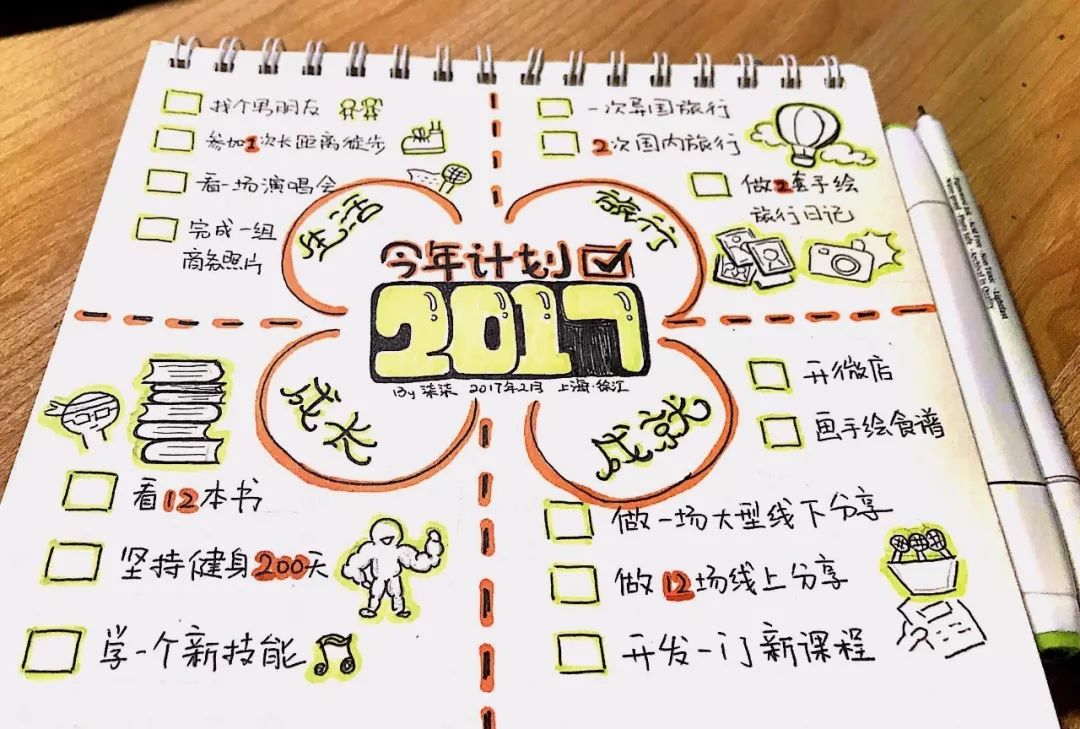 找个男朋友
参加1次长距离徒步
看一场演唱会
完成一组
商务照片
生活
一次异国旅行
2次国内旅行
做2套手绘
旅行日记
旅行
今年计划
2017
By 柒柒 2017年2月 上海·徐汇
成长
看12本书
坚持健身200天
学一个新技能
成就
开微店
画手绘食谱
做一场大型线下分享
做12场线上分享
开发一门新课程